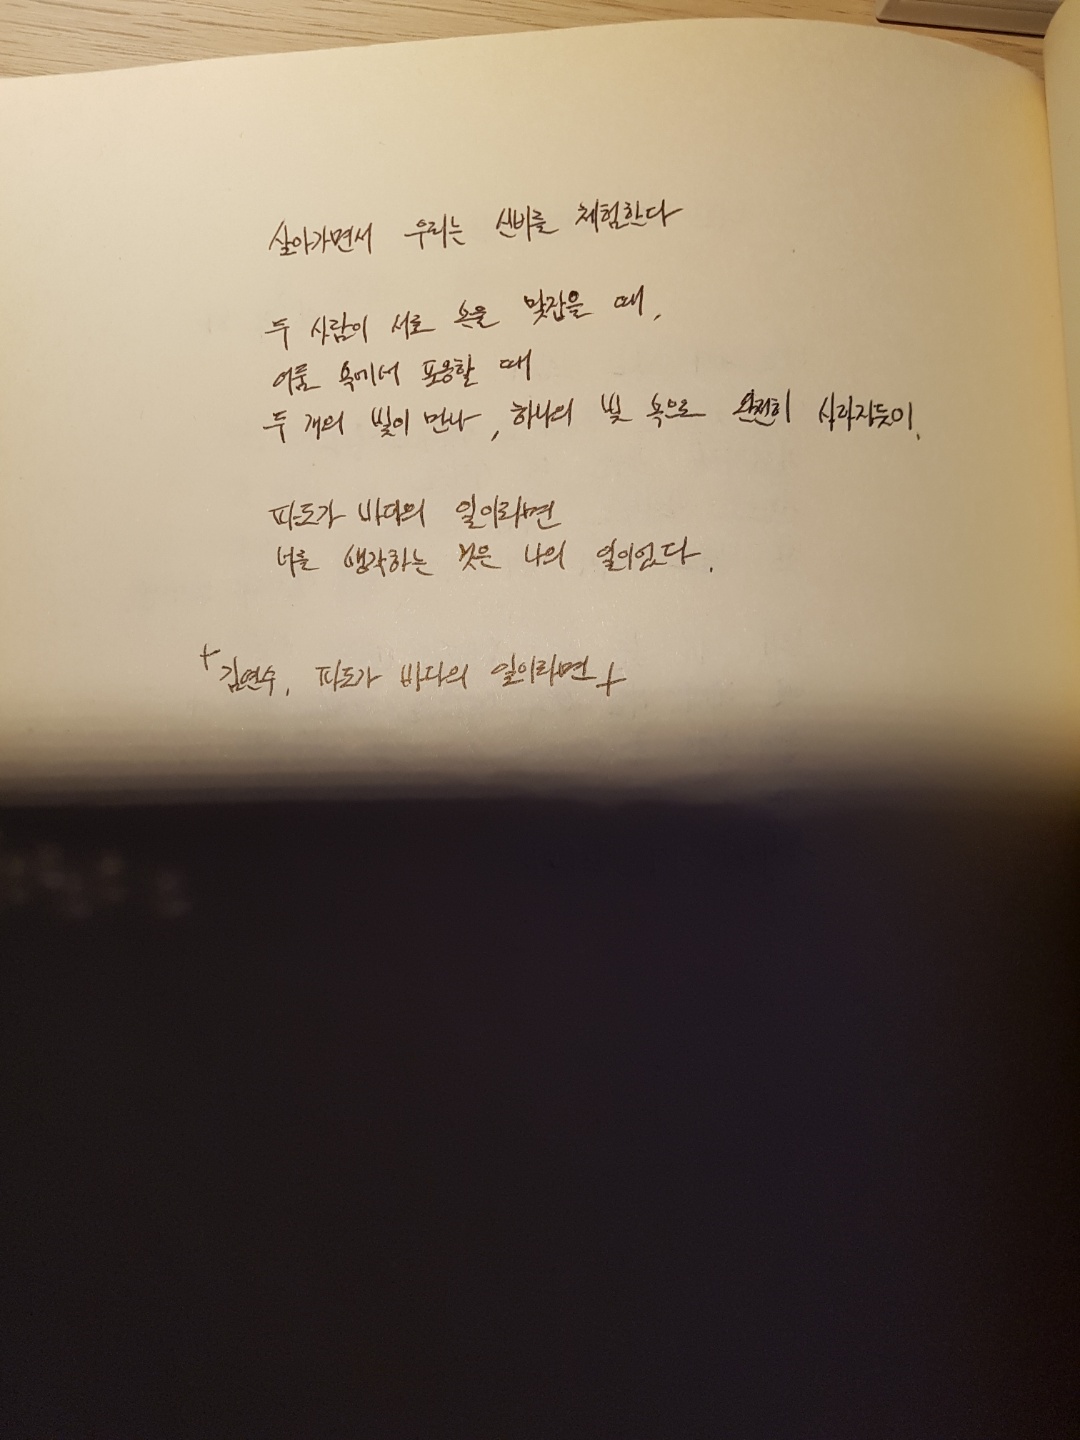 살아가면서 우리는 신비를 체험한다
두 사람이 서로 손을 맞잡을 때,
어둠 속에서 포옹할 때
두 개의 빛이 만나, 하나의 빛 속으로 완전히 사라지듯이.
파도가 바다의 일이라면
너를 생각하는 것은 나의 일이었다.
+김연수, 파도가 바다의 일이라면+